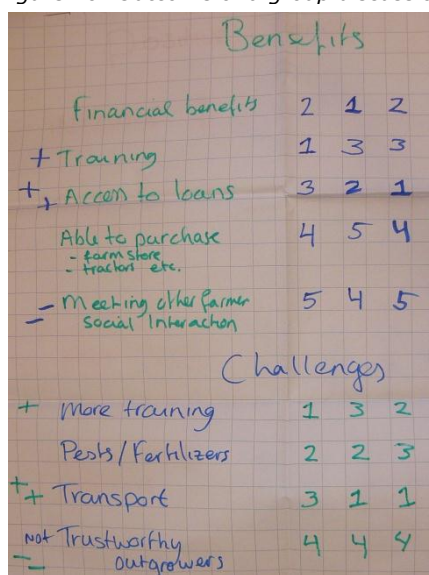 Benefits
Financial benefits 2 1 2
+ Training 1 3 3
++ Access to loans 3 2 1
Able to purchase 4 5 4
- farm store
- tractors etc.
= Meeting other farmer 5 4 5
social Interaction
Challenges
+ More training 1 3 2
Pests/Fertilizers 2 2 3
++ Transport 3 1 1
Not Trustworthy 4 4 4
= outgrowers